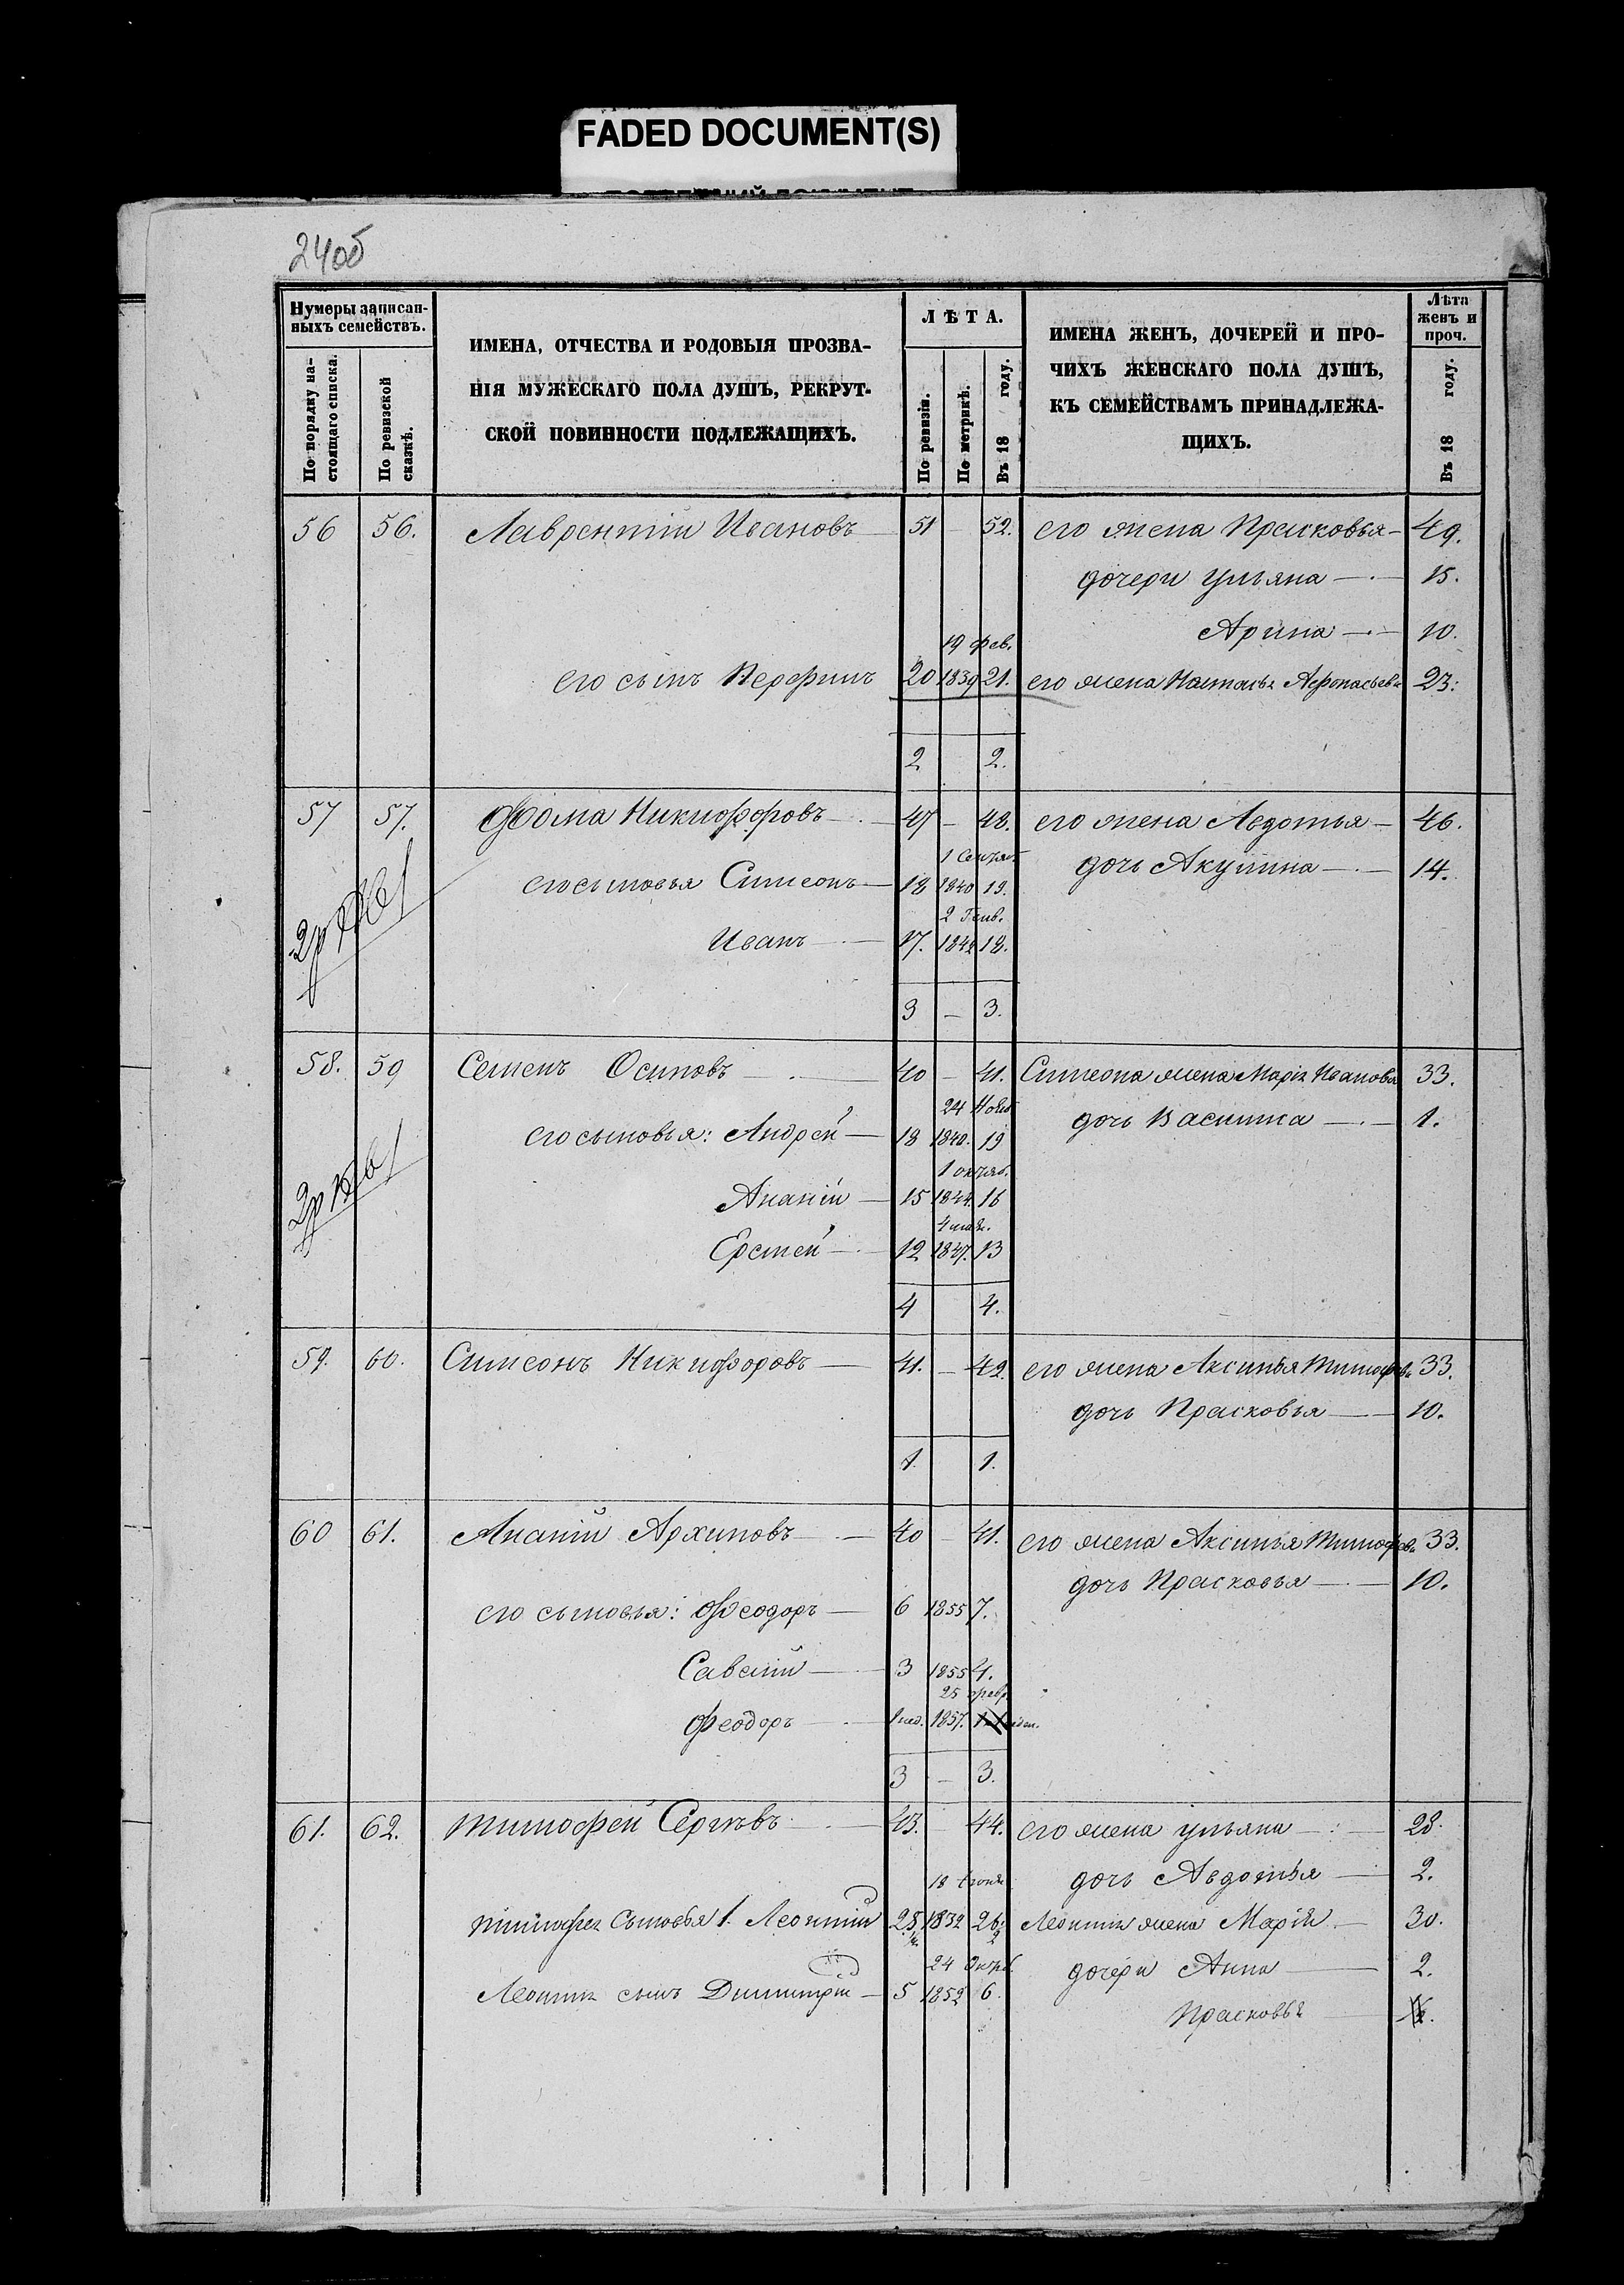 FADED DOCUMENT(S)
24об
Нумеры записан-
ныхъ семействъ.
По порядку на-
стоящаго списка.
По ревизской
сказкѣ.
ИМЕНА, ОТЧЕСТВА И РОДОВЫЯ ПРОЗВА-
НІЯ МУЖЕСКАГО ПОЛА ДУШЪ, РЕКРУТ-
СКОЙ ПОВИННОСТИ ПОДЛЕЖАЩИХЪ.
ЛѢТА.
По ревизіи.
По метрикѣ.
Въ 18 году.
ИМЕНА ЖЕНЪ, ДОЧЕРЕЙ И ПРО-
ЧИХЪ ЖЕНСКАГО ПОЛА ДУШЪ,
КЪ СЕМЕЙСТВАМЪ ПРИНАДЛЕЖА-
ЩИХЪ.
Лѣта
женъ и
проч.
Въ 18 году.
56 56. Лаврентій Ивановъ 51 — 52. его жена Прасковья — 49.
дочери Ульяна — 15.
Арина — 10.
19 фев.
его сынъ Перфилъ 20 1839 21. его жена Настасья Афонасьева 23.
2 2.
57 57. Фома Никифоровъ — 47 — 48. его жена Авдотья — 46.
1 Сентяб.
его сыновья Симеонъ — 18 1840 19. дочь Акулина — 14.
2 Генв.
Иванъ — 17. 1842 18.
3 — 3.
58. 59 Семенъ Осиповъ — 40 — 41. Симеона жена Марія Иванова 33.
24 Нояб.
его сыновья: Андрей — 18 1840. 19 дочь Василиса — 1.
1 октяб.
Ананій — 15 1844. 16
4 ноя.
Ермей — 12 1847. 13
4 4.
59. 60. Симеонъ Никифоровъ — 41. — 42. его жена Аксинья Тимофева 33.
дочь Прасковья — 10.
1. 1.
60 61. Ананій Архиповъ — 40 — 41. его жена Аксинья Тимофев. 33.
дочь Прасковья — 10.
его сыновья: Феодоръ — 6 1855 7.
Савелій — 3 1855 4.
25 февр.
Феодоръ — 1 нед. 1857.
3 — 3.
61. 62. Тимофей Сергѣевъ — 43. 44. его жена Ульяна — 28.
18 Іюня
дочь Авдотья — 2.
Тимофея Сыновья 1. Леонтій 25 1832 26. Леонтія жена Марія — 30.
24 Октяб.
дочери Анна — 2.
Леонтія сынъ Димитрій — 5 1852 6.
Прасковья